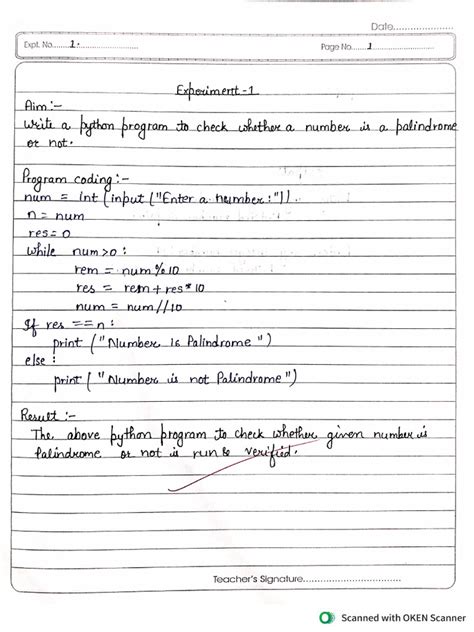 Date..................
Expt. No.......1.........................
Page No........1...................
Experiment-1
Aim:-
Write a python program to check whether a number is a palindrome
or not.
Program coding:-
num = int (input ("Enter a number:"))
n = num
res = 0
while num>0:
rem = num % 10
res = rem + res * 10
num = num//10
If res == n:
print ("Number is Palindrome")
else:
print ("Number is not Palindrome")
Result:-
The above python program to check whether given number is
Palindrome or not is run & verified.
Teacher's Signature...........................
Scanned with OKEN Scanner